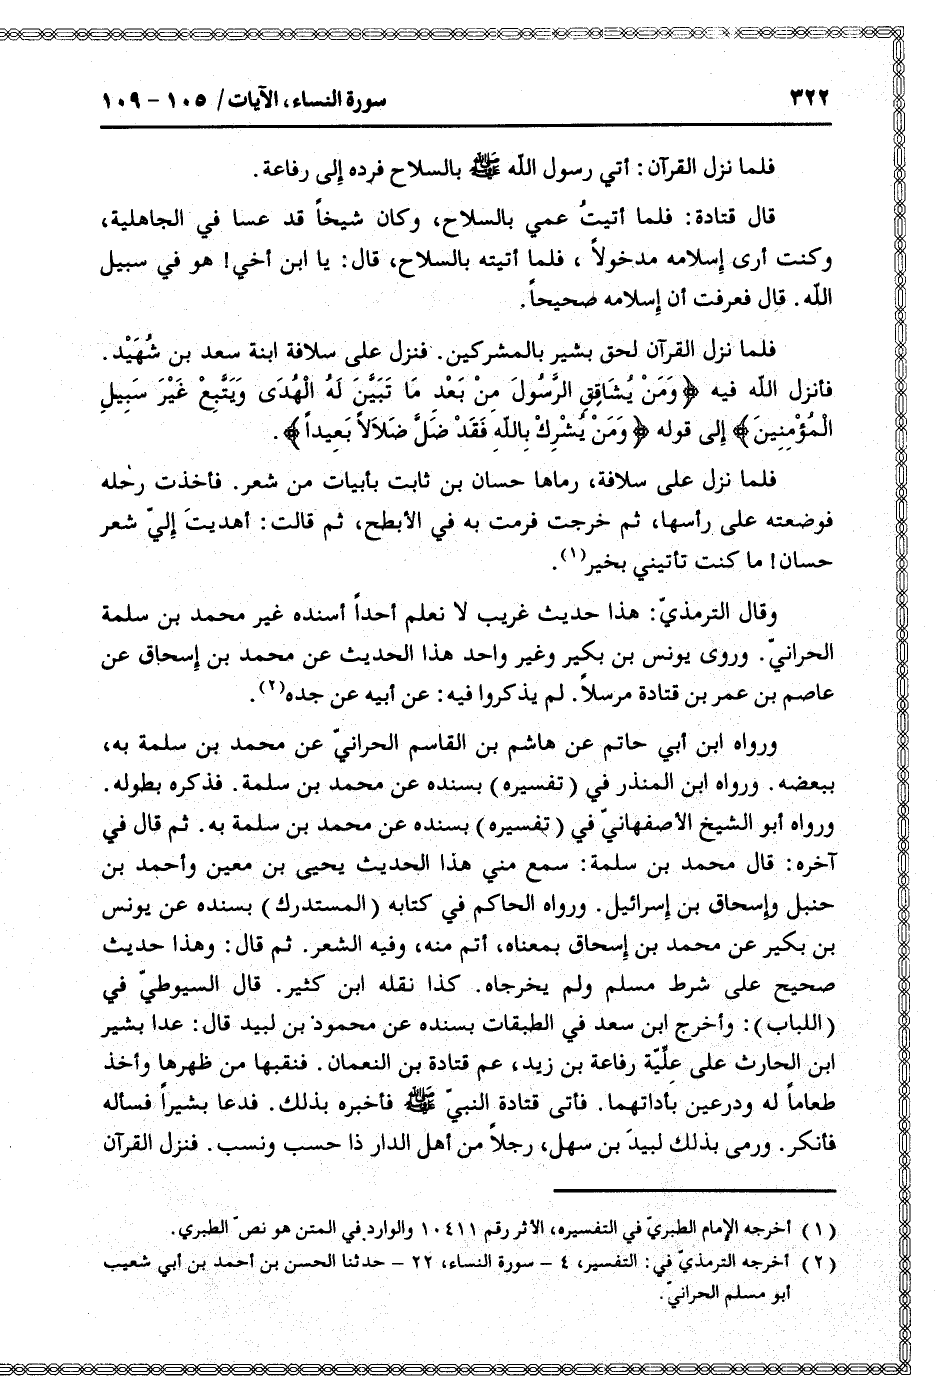 ٣٢٢
سورة النساء، الآيات/ ١٠٥ - ١٠٩
فلما نزل القرآن: أتي رسول الله ﷺ بالسلاح فرده إلى رفاعة.
قال قتادة: فلما أتيتُ عمي بالسلاح، وكان شيخاً قد عسا في الجاهلية،
وكنت أرى إسلامه مدخولاً، فلما أتيته بالسلاح، قال: يا ابن أخي! هو في سبيل
الله. قال فعرفت أن إسلامه صحيحاً.
فلما نزل القرآن لحق بشير بالمشركين. فنزل على سلافة ابنة سعد بن شُهَيْد.
فأنزل الله فيه ﴿وَمَنْ يُشَاقِقِ الرَّسُولَ مِنْ بَعْدِ مَا تَبَيَّنَ لَهُ الْهُدَى وَيَتَّبِعْ غَيْرَ سَبِيلِ
الْمُؤْمِنِينَ﴾ إلى قوله ﴿وَمَنْ يُشْرِكْ بِاللَّهِ فَقَدْ ضَلَّ ضَلَالاً بَعِيداً﴾.
فلما نزل على سلافة، رماها حسان بن ثابت بأبيات من شعر. فأخذت رحله
فوضعته على رأسها، ثم خرجت فرمت به في الأبطح، ثم قالت: أهديتَ إليّ شعر
حسان! ما كنت تأتيني بخير(١).
وقال الترمذيّ: هذا حديث غريب لا نعلم أحداً أسنده غير محمد بن سلمة
الحرانيّ. وروى يونس بن بكير وغير واحد هذا الحديث عن محمد بن إسحاق عن
عاصم بن عمر بن قتادة مرسلاً. لم يذكروا فيه: عن أبيه عن جده(٢).
ورواه ابن أبي حاتم عن هاشم بن القاسم الحرانيّ عن محمد بن سلمة به،
ببعضه. ورواه ابن المنذر في (تفسيره) بسنده عن محمد بن سلمة. فذكره بطوله.
ورواه أبو الشيخ الأصفهانيّ في (تفسيره) بسنده عن محمد بن سلمة به. ثم قال في
آخره: قال محمد بن سلمة: سمع مني هذا الحديث يحيى بن معين وأحمد بن
حنبل وإسحاق بن إسرائيل. ورواه الحاكم في كتابه (المستدرك) بسنده عن يونس
بن بكير عن محمد بن إسحاق بمعناه، أتم منه، وفيه الشعر. ثم قال: وهذا حديث
صحيح على شرط مسلم ولم يخرجاه. كذا نقله ابن كثير. قال السيوطيّ في
(اللباب): وأخرج ابن سعد في الطبقات بسنده عن محمود بن لبيد قال: عدا بشير
ابن الحارث على عِلِّيّة رفاعة بن زيد، عم قتادة بن النعمان. فنقبها من ظهرها وأخذ
طعاماً له ودرعين بأداتهما. فأتى قتادة النبيّ ﷺ فأخبره بذلك. فدعا بشيراً فسأله
فأنكر. ورمى بذلك لبيدَ بن سهل، رجلاً من أهل الدار ذا حسب ونسب. فنزل القرآن
(١) أخرجه الإمام الطبريّ في التفسيره، الأثر رقم ١٠٤١١ والوارد في المتن هو نصّ الطبري.
(٢) أخرجه الترمذيّ في: التفسير، ٤ - سورة النساء، ٢٢ - حدثنا الحسن بن أحمد بن أبي شعيب
أبو مسلم الحرانيّ.